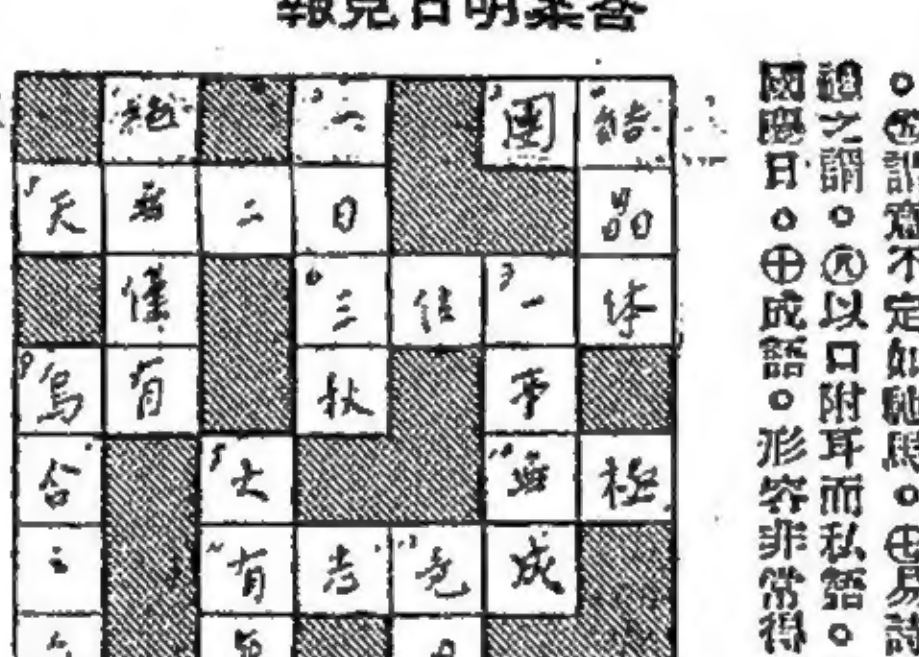 答案明日見報
絕 一 團 結
天 無 二 日 晶
僅 三 位 一 体
烏 有 秋 事
合 大 無 極
之 有 志 竟 成
謂意不定如馳馬。
過之謂。以口附耳而私語。
國慶日。㊉成語。形容非常得